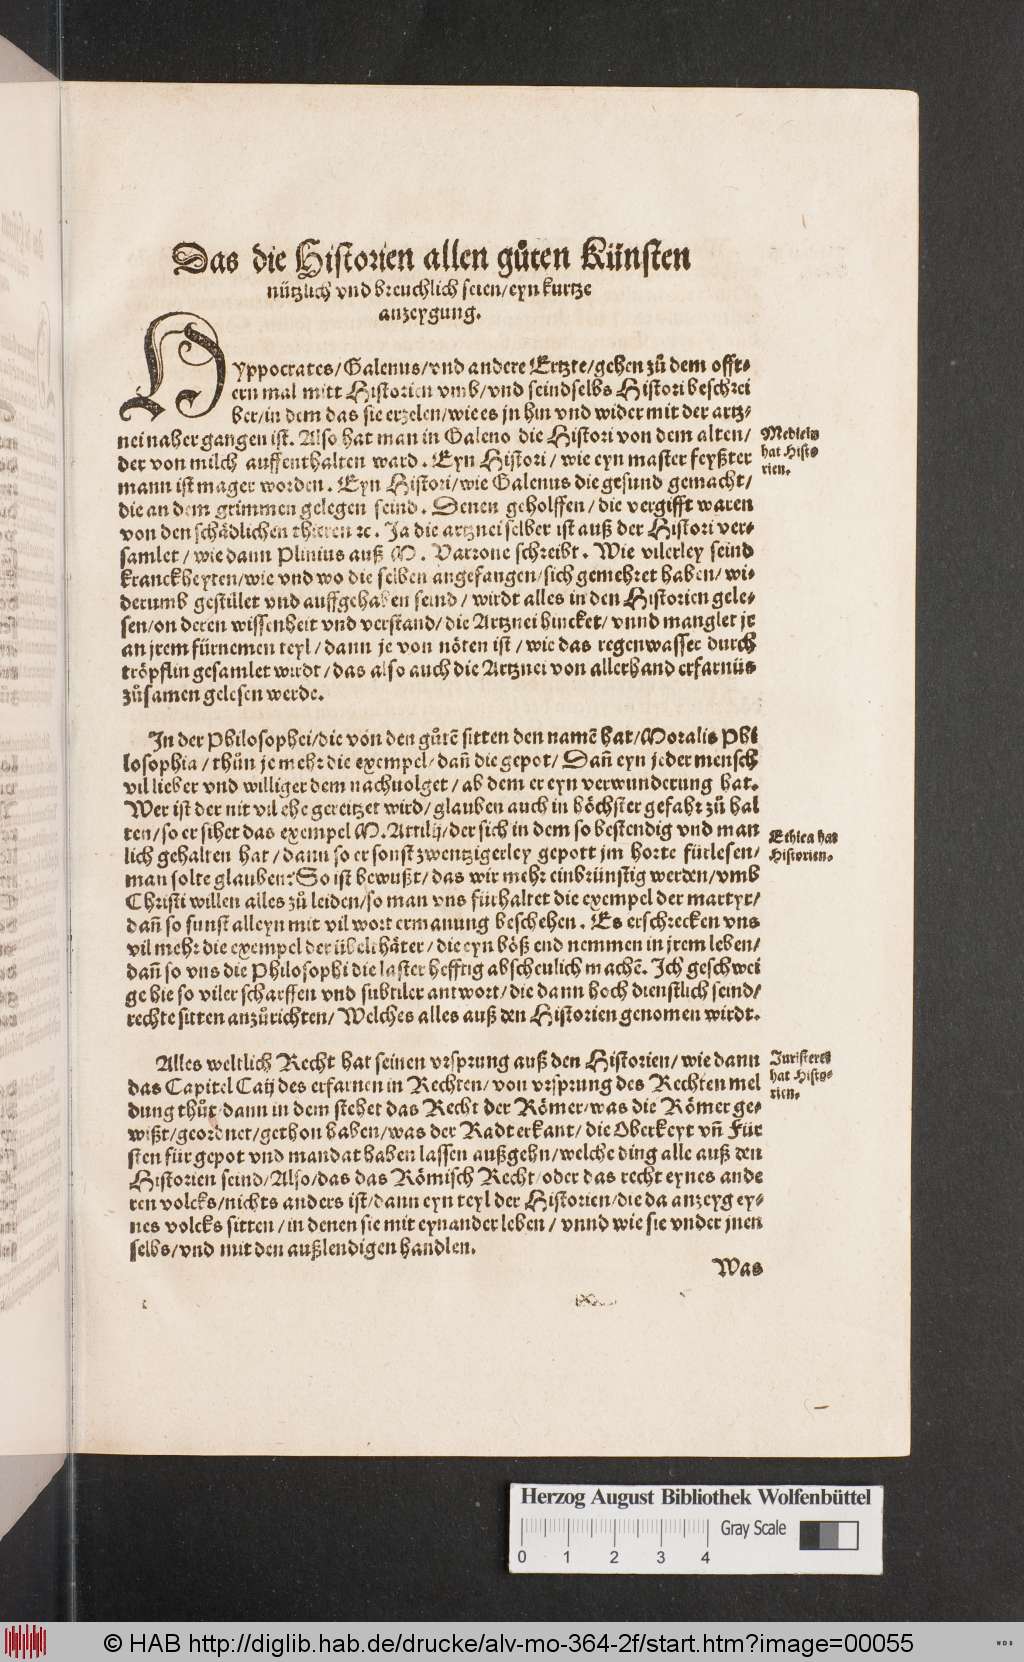 Das die Historien allen gůten Künsten
nützlich vnd breuchlich seien/eyn kurtze
anzeygung.
HYppocrates/Galenus/vnd andere Ertzte/gehen zů dem offt⸗
ern mal mitt Historien vmb/vnd seindselbs Histori beschrei
ber/in dem das sie erzelen/wie es jn hin vnd wider mit der artz⸗
nei naher gangen ist. Also hat man in Galeno die Histori von dem alten/
der von milch auffenthalten ward. Eyn Histori/wie eyn master feyßter
mann ist mager worden. Eyn Histori/wie Galenus die gesund gemacht/
die an dem grimmen gelegen seind. Denen geholffen/die vergifft waren
von den schädlichen thieren ꝛc. Ja die artznei selber ist auß der Histori ver⸗
samlet/wie dann Plinius auß M. Varrone schreibt. Wie vilerley seind
kranckheyten/wie vnd wo die selben angefangen/sich gemehret haben/wi⸗
derumb gestillet vnd auffgehaben seind/wirdt alles in den Historien gele⸗
sen/on deren wissenheit vnd verstand/die Artznei hincket/vnnd manglet jr
an jrem fürnemen teyl/dann je von nöten ist/wie das regenwasser durch
tröpflin gesamlet wirdt/das also auch die Artznei von allerhand erfarnüs
zůsamen gelesen werde.
Medicin
hat Histo⸗
rien.
In der Philosophei/die von den gůtē sitten den namē hat/Moralis Phi
losophia/thůn je mehr die exempel/dañ die gepot/Dañ eyn jeder mensch
vil lieber vnd williger dem nachuolget/ab dem er eyn verwunderung hat.
Wer ist der nit vil ehe gereitzet wird/glauben auch in höchster gefahr zů hal
ten/so er sihet das exempel M. Attilij/der sich in dem so bestendig vnd man
lich gehalten hat/dann so er sonst zwentzigerley gepott jm horte fürlesen/
man solte glauben? So ist bewußt/das wir mehr einbrünstig werden/vmb
Christi willen alles zů leiden/so man vns fürhaltet die exempel der martyr/
dañ so sunst alleyn mit vil wort ermanung beschehen. Es erschrecken vns
vil mehr die exempel der übelthäter/die eyn böß end nemmen in jrem leben/
dañ so vns die Philosophi die laster hefftig abscheulich machē. Ich geschwei
ge hie so viler scharffen vnd subtiler antwort/die dann hoch dienstlich seind/
rechte sitten anzůrichten/Welches alles auß den Historien genomen wirdt.
Ethica hat
Historien.
Alles weltlich Recht hat seinen vrsprung auß den Historien/wie dann
das Capitel Caij des erfarnen in Rechten/von vrsprung des Rechten mel
dung thůt/dann in dem stehet das Recht der Römer/was die Römer ge⸗
wißt/geordnet/gethon haben/was der Radt erkant/die Oberkeyt vñ Für
sten für gepot vnd mandat haben lassen außgehn/welche ding alle auß den
Historien seind/Also/das das Römisch Recht/oder das recht eynes ande
ren volcks/nichts anders ist/dann eyn teyl der Historien/die da anzeyg ey⸗
nes volcks sitten/in denen sie mit eynander leben/vnnd wie sie vnder jnen
selbs/vnd mit den außlendigen handlen.
Juristerei
hat Histo⸗
rien.
Was
Herzog August Bibliothek Wolfenbüttel
Gray Scale
0 1 2 3 4
© HAB http://diglib.hab.de/drucke/alv-mo-364-2f/start.htm?image=00055